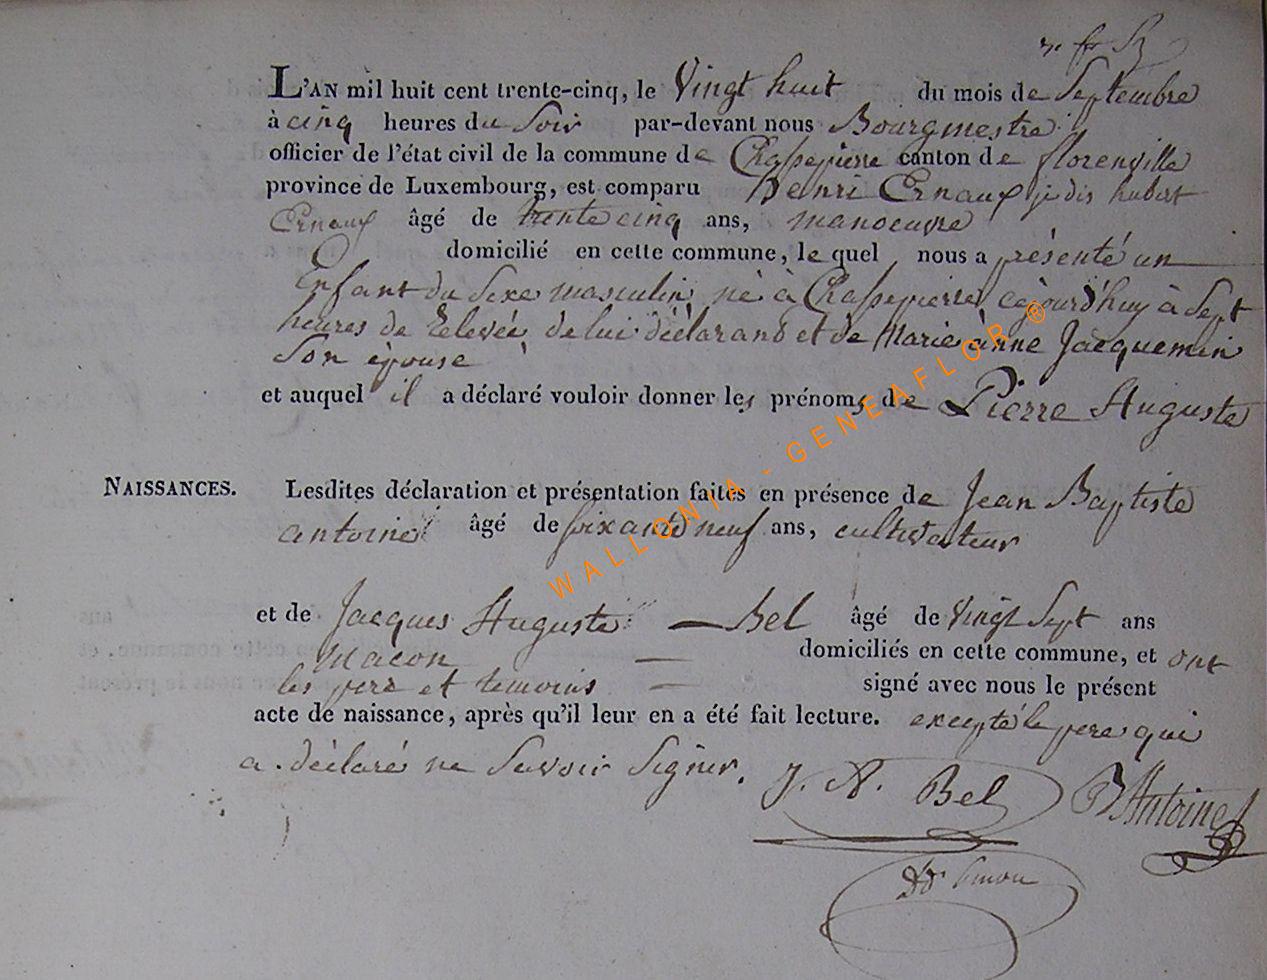 L'AN mil huit cent trente-cinq, le Vingt huit du mois de Septembre
à cinq heures du Soir par-devant nous Bourgmestre
officier de l'état civil de la commune de Chassepierre canton de florenville
province de Luxembourg, est comparu Henri Ernaux je dis hubert
Ernaux âgé de trente cinq ans, manoeuvre
domicilié en cette commune, le quel nous a présenté un
Enfant du Sexe masculin, né à Chassepierre cejourd'huy à Sept
heures de Relevée, de lui déclarand et de Marie anne Jacquemin
Son épouse
et auquel il a déclaré vouloir donner les prénoms de Pierre Auguste
NAISSANCES. Lesdites déclaration et présentation faites en présence de Jean Baptiste
antoine âgé de soixante neuf ans, cultivateur
et de Jacques Auguste Bel âgé de Vingt Sept ans
Macon domiciliés en cette commune, et ont
les pere et temoins signé avec nous le présent
acte de naissance, après qu'il leur en a été fait lecture. excepté le pere qui
a déclaré ne Savoir Signer. J. A. Bel B Antoine
WALLONIA - GENEAFLOR ®